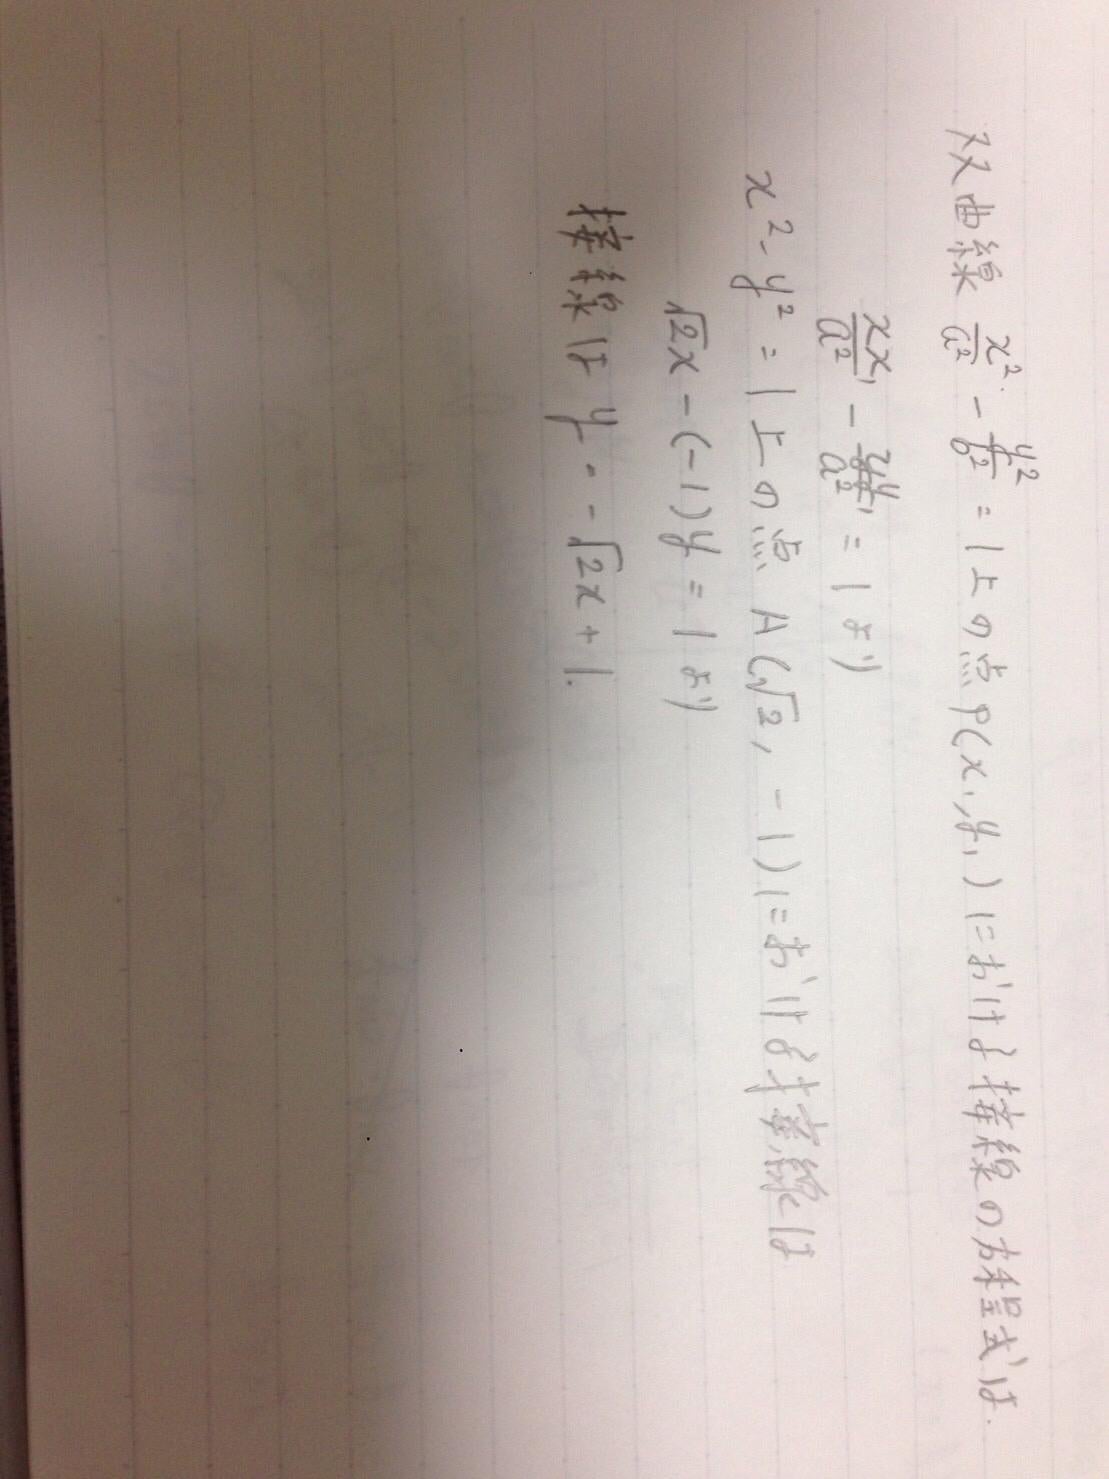 双曲線 x²/a² - y²/b² = 1上の点P(x₁,y₁)における接線の方程式は.
xx₁/a² - yy₁/a² = 1より
x² - y² = 1上の点A(√2, -1)における接線は
√2x - (-1)y = 1より
接線は y = -√2x + 1.